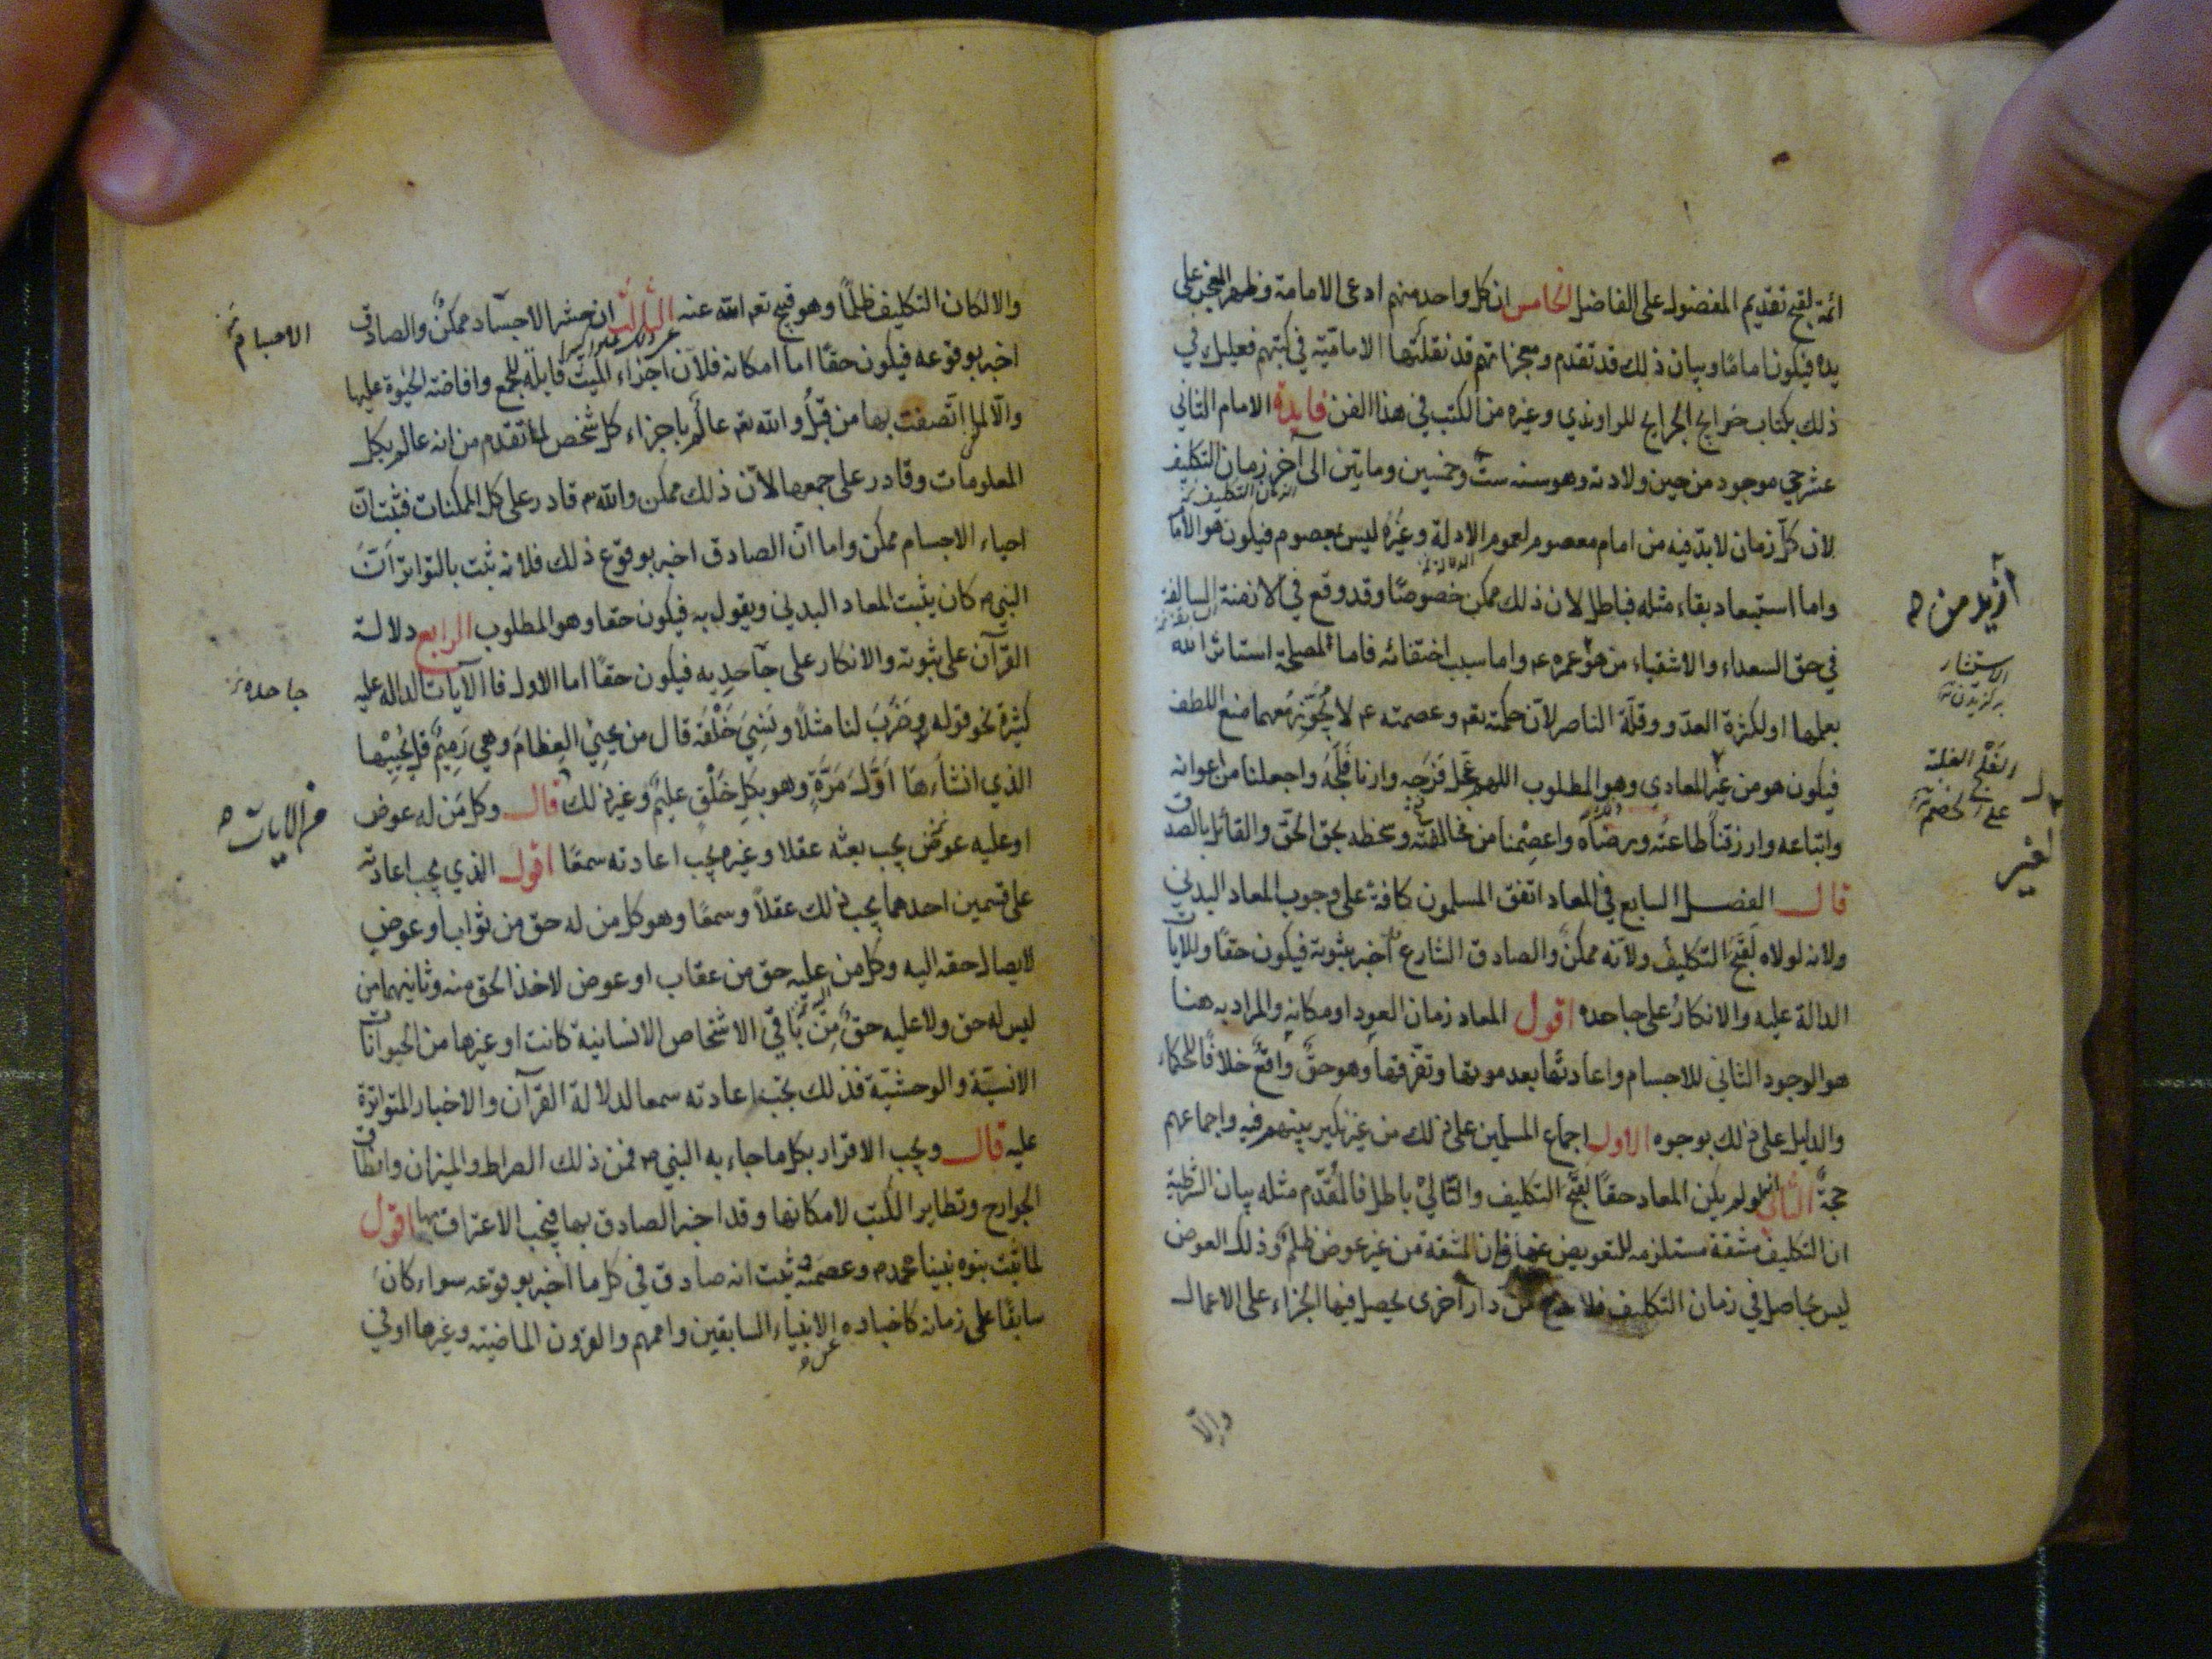 ائمة لقبح تقديم المفضول على الفاضل الخامس ان كل واحد منهم ادعى الامامة وظهر المعجز على
يده فيكون اماما وبيان ذلك قد تقدم ومعجزاتهم قد نقلتها الامامية في كتبهم فعليك في
ذلك بكتاب خرايج الجرايح للراوندي وغيره من الكتب في هذا الفن فايدة الامام الثاني
عشر حي موجود من حين ولادته وهو سنه ست وخمسين وماتين الى آخر زمان التكليف
لان كل زمان لابد فيه من امام معصوم لعموم الادلة وغيره ليس بمعصوم فيكون هو الامام
واما استبعاد بقاء مثله فباطل لان ذلك ممكن خصوصا وقد وقع في الازمنة السالفة
في حق السعداء والاشقياء من هو عمره ع واما سبب اختفائه فاما لمصلحة استاثر الله
بعلمها او لكثرة العدو وقلة الناصر لان حكمته تعم وعصمته ع لا يجوز معهما منع اللطف
فيكون هو من غير المعادى وهو المطلوب اللهم عجل فرجه وارنا فلجه واجعلنا من اعوانه
واتباعه وارزقنا طاعته ورضاه واعصمنا من مخالفته وسخطه بحق الحق والقائل بالصدق
قال الفصل السابع في المعاد اتفق المسلمون كافة على وجوب المعاد البدني
ولانه لولاه لقبح التكليف ولانه ممكن والصادق الشارع اخبر بثبوته فيكون حقا وللايات
الدالة عليه والانكار على جاحده اقول المعاد زمان العود او مكانه والمراد به هنا
هو الوجود الثاني للاجسام واعادتها بعد موتها وتفرقها وهو حق واقع خلافا للحكماء
والدليل على ذلك بوجوه الاول اجماع المسلمين على ذلك من غير نكير بينهم فيه واجماعهم
حجة الثاني انه لو لم يكن المعاد حقا لقبح التكليف والتالي باطل فالمقدم مثله بيان الشرطية
ان التكليف مشقة مستلزمه للتعويض عنها فان المشقة من غير عوض ظلم وذلك العوض
ليس بحاصل في زمان التكليف فلا من دار اخرى يحصل فيها الجزاء على الاعمال
والا
ازيد من
الاستيثار
برگزيدن
الفلج الغلبة
على الخصم
والا لكان التكليف ظلما وهو قبيح تعم الله عنه الثالث ان حشر الاجساد ممكن والصادق
اخبر بوقوعه فيكون حقا اما امكانه فلان اجزاء الميت قابلة للجمع وافاضة الحيوة عليها
والا لما اتصفت بها من قبل والله تعم عالم باجزاء كل شخص لما تقدم من انه عالم بكل
المعلومات وقادر على جمعها لان ذلك ممكن والله تم قادر على كل الممكنات فثبت ان
احياء الاجسام ممكن واما ان الصادق اخبر بوقوع ذلك فلانه ثبت بالتواتر ان
النبي ص كان يثبت المعاد البدني ويقول به فيكون حقا وهو المطلوب الرابع دلالة
القرآن على ثبوته والانكار على جاحديه فيكون حقا اما الاول فالآيات الداله عليه
كثيرة نحو قوله وضرب لنا مثلا ونسي خلقه قال من يحيي العظام وهي رميم قل يحييها
الذي انشاءها اول مرة وهو بكل خلق عليم وغير ذلك قال وكل من له عوض
او عليه عوض يجب بعثه عقلا وغيره يجب اعادته سمعا اقول الذي يجب اعادته
على قسمين احدهما يجب ذلك عقلا وسمعا وهو كل من له حق من ثواب او عوض
لايصال حقه اليه وكل من عليه حق من عقاب او عوض لاخذ الحق منه وثانيهما من
ليس له حق ولا عليه حق من باقي الاشخاص الانسانية كانت او غيرها من الحيوانات
الانسية والوحشية فذلك يجب اعادته سمعا لدلالة القرآن والاخبار المتواترة
عليه قال ويجب الاقرار بكل ما جاء به النبي ص فمن ذلك الصراط والميزان وانطاق
الجوارح وتطاير الكتب لامكانها وقد اخبر الصادق بها فيجب الاعتراف بها اقول
لما ثبت نبوه نبينا محمد ص وعصمته ثبت انه صادق في كل ما اخبر بوقوعه سواء كان
سابقا على زمانه كاخباره عن الانبياء السابقين واممهم والقرون الماضية وغيرها او في
الاجسام
جاحده
من الايات